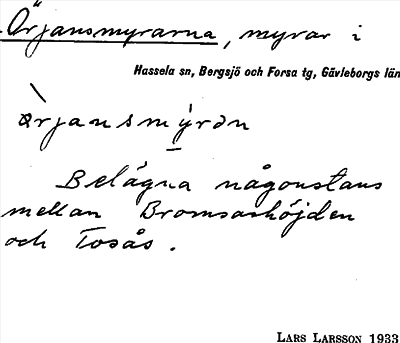 Örjansmyrarna, myrar i
Hassela sn, Bergsjö och Forsa tg, Gävleborgs län
ö̀rjansmýrən
Belägna någonstans
mellan Bromsashöjden
och Tosås.
LARS LARSSON 1933